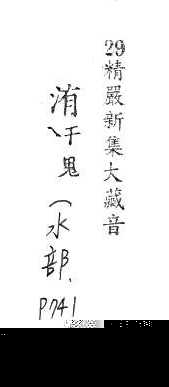 29精嚴新集大藏音
洧于鬼(水部、P.741